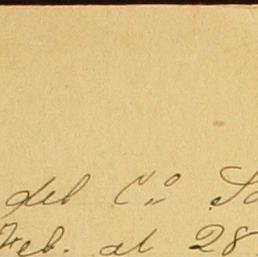 del C.º
Feb. al 28